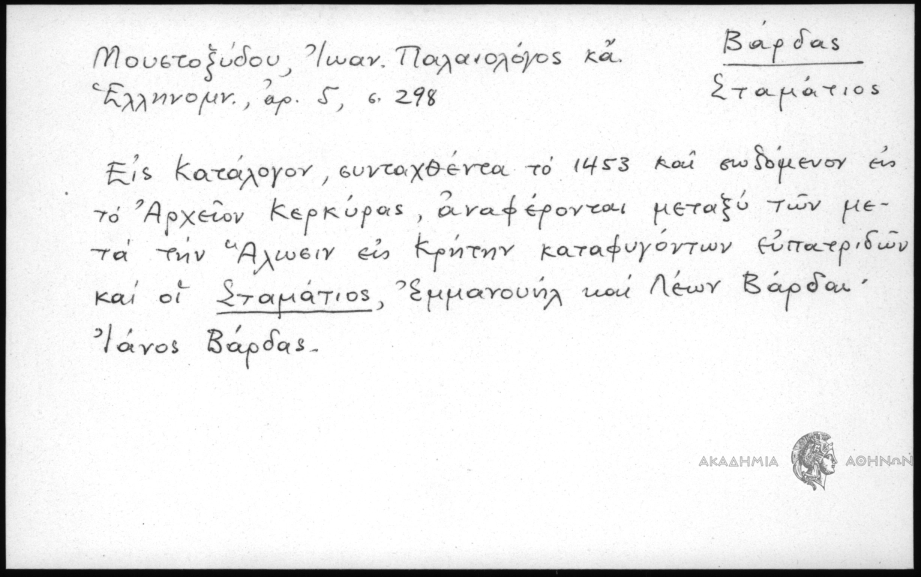 Βάρδας
Σταμάτιος
Μουστοξύδου, Ἰωαν. Παλαιολόγος κἄ.
Ἑλληνομν., ἀρ. 5, σ. 298
Εἰς Κατάλογον, συνταχθέντα τὸ 1453 καὶ σωδόμενον εἰς
τὸ Ἀρχεῖον Κερκύρας, ἀναφέρονται μεταξὺ τῶν με-
τὰ τὴν Ἅλωσιν εἰς Κρήτην καταφυγόντων εὐπατριδῶν
καὶ οἱ Σταμάτιος, Ἐμμανουὴλ καὶ Λέων Βάρδαι·
Ἰάνος Βάρδας.
ΑΚΑΔΗΜΙΑ ΑΘΗΝΩΝ